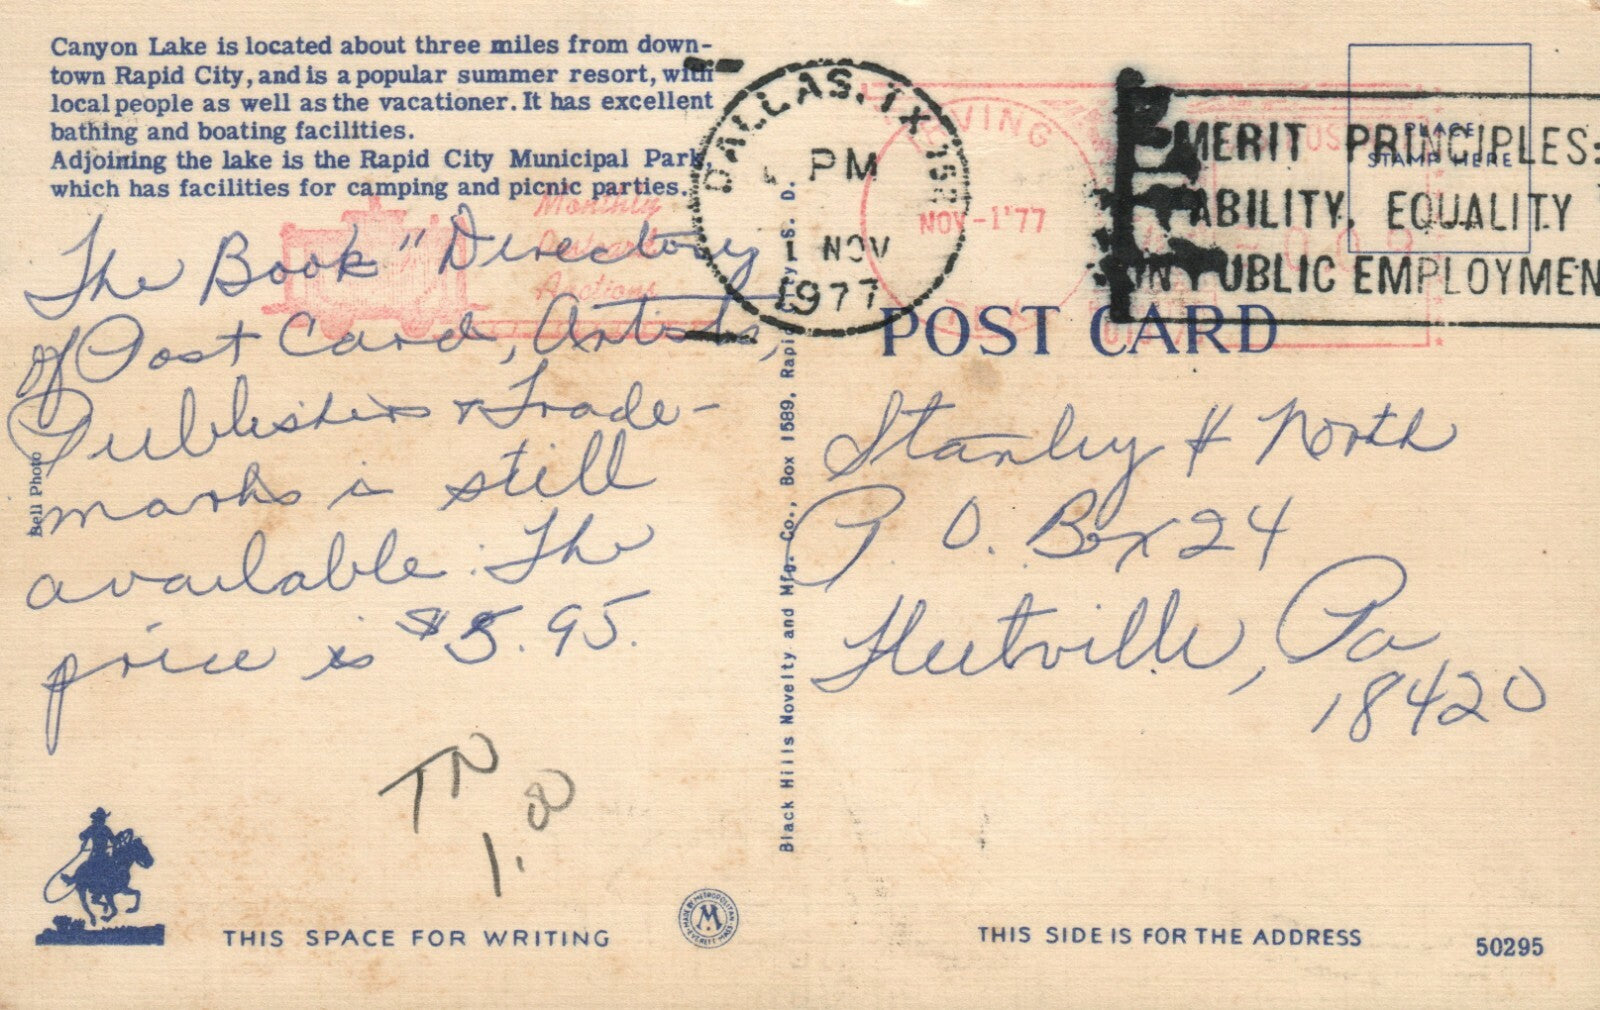 Canyon Lake is located about three miles from down-
town Rapid City, and is a popular summer resort, with
local people as well as the vacationer. It has excellent
bathing and boating facilities.
Adjoining the lake is the Rapid City Municipal Park,
which has facilities for camping and picnic parties.
The Book "Directory
of Post Card, Artists,
Publishers & Trade-
marks is still
available. The
price is $5.95.
Bell Photo
TN
1.00
THIS SPACE FOR WRITING
MADE BY METROPOLITAN
M
EVERETT MASS
Monthly
Postcard
Auctions
DALLAS, TX 152
PM
1 NOV
1977
Black Hills Novelty and Mfg. Co., Box 1589, Rapid City, S. D.
IRVING
NOV-1'77
MERIT PRINCIPLES:
ABILITY, EQUALITY
IN PUBLIC EMPLOYMEN
PLACE
STAMP HERE
POST CARD
Stanley H North
P. O. Box 24
Fleetville, Pa
18420
THIS SIDE IS FOR THE ADDRESS
50295